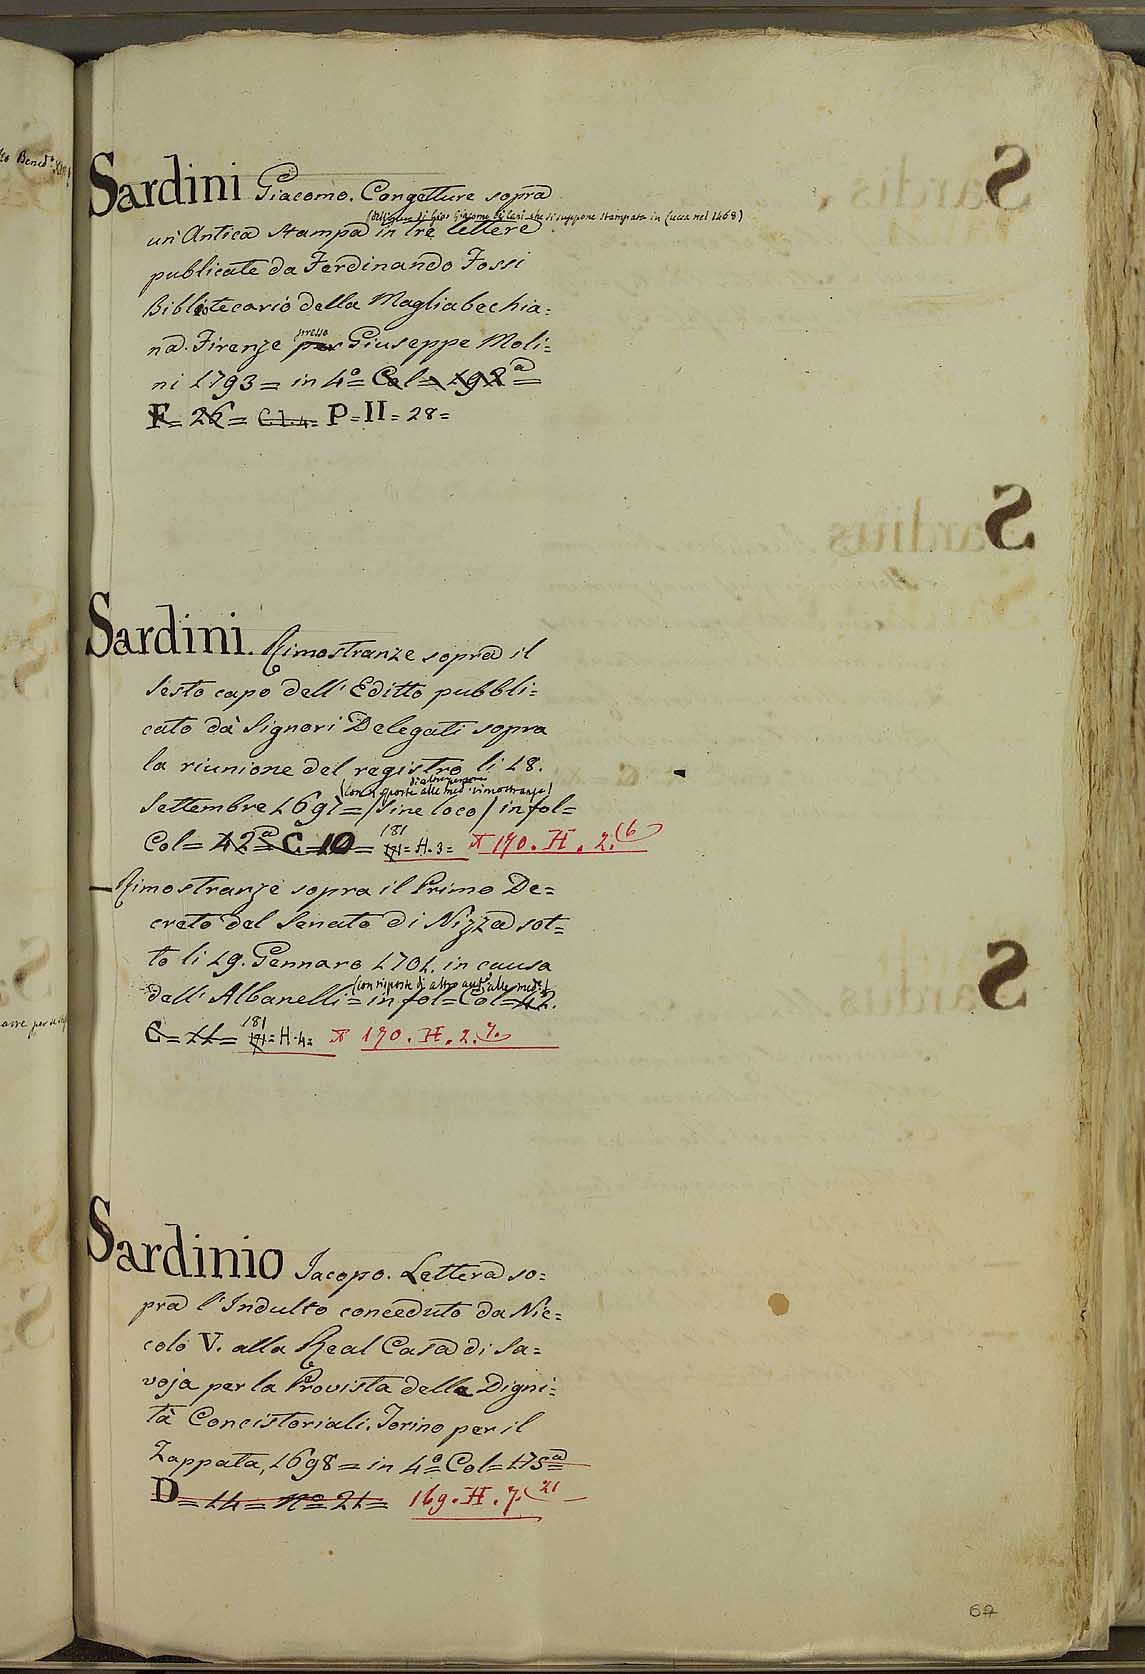 Sardini Giacomo. Congetture sopra
che si suppone stampata in Lucca nel 1468)
un' Antica stampa in tre lettere
publicate da Ferdinando Fossi
Bibliotecario della Magliabechia=
na. Firenze per presso Giuseppe Moli=
ni 1793 = in 4º = Col = 192ª =
F = 26 = C.1.4 = P = II = 28 =
Sardini. Rimostranze sopra il
sesto capo dell' Editto pubbli=
cato da' Signori Delegati sopra
la riunione del registro li 18.
di altre persone
(con risposte alle med. rimostranze)
Settembre 1697 = / sine loco / in fol =
Col = 42ª = C = 10 = 181 = H. 3 = 170. H. 2. (6
— Rimostranze sopra il Primo De=
creto del Senato di Nizza sot=
to li 19. Gennaro 1701. in causa
(con risposte di altro aut. alle med.)
dell' Albanelli = in fol = Col = 42.
C = 11 = 181 = H. 4 = 170. H. 2. 7.
Sardinio Jacopo. Lettera so=
pra l'Indulto conceduto da Nic=
colò V. alla Real Casa di Sa=
voja per la Provista delle Digni=
tà Concistoriali. Torino per il
Zappata, 1698 = in 4º = Col = 175ª =
D = 14 = Nº = 21 = 169. H. 7. (21